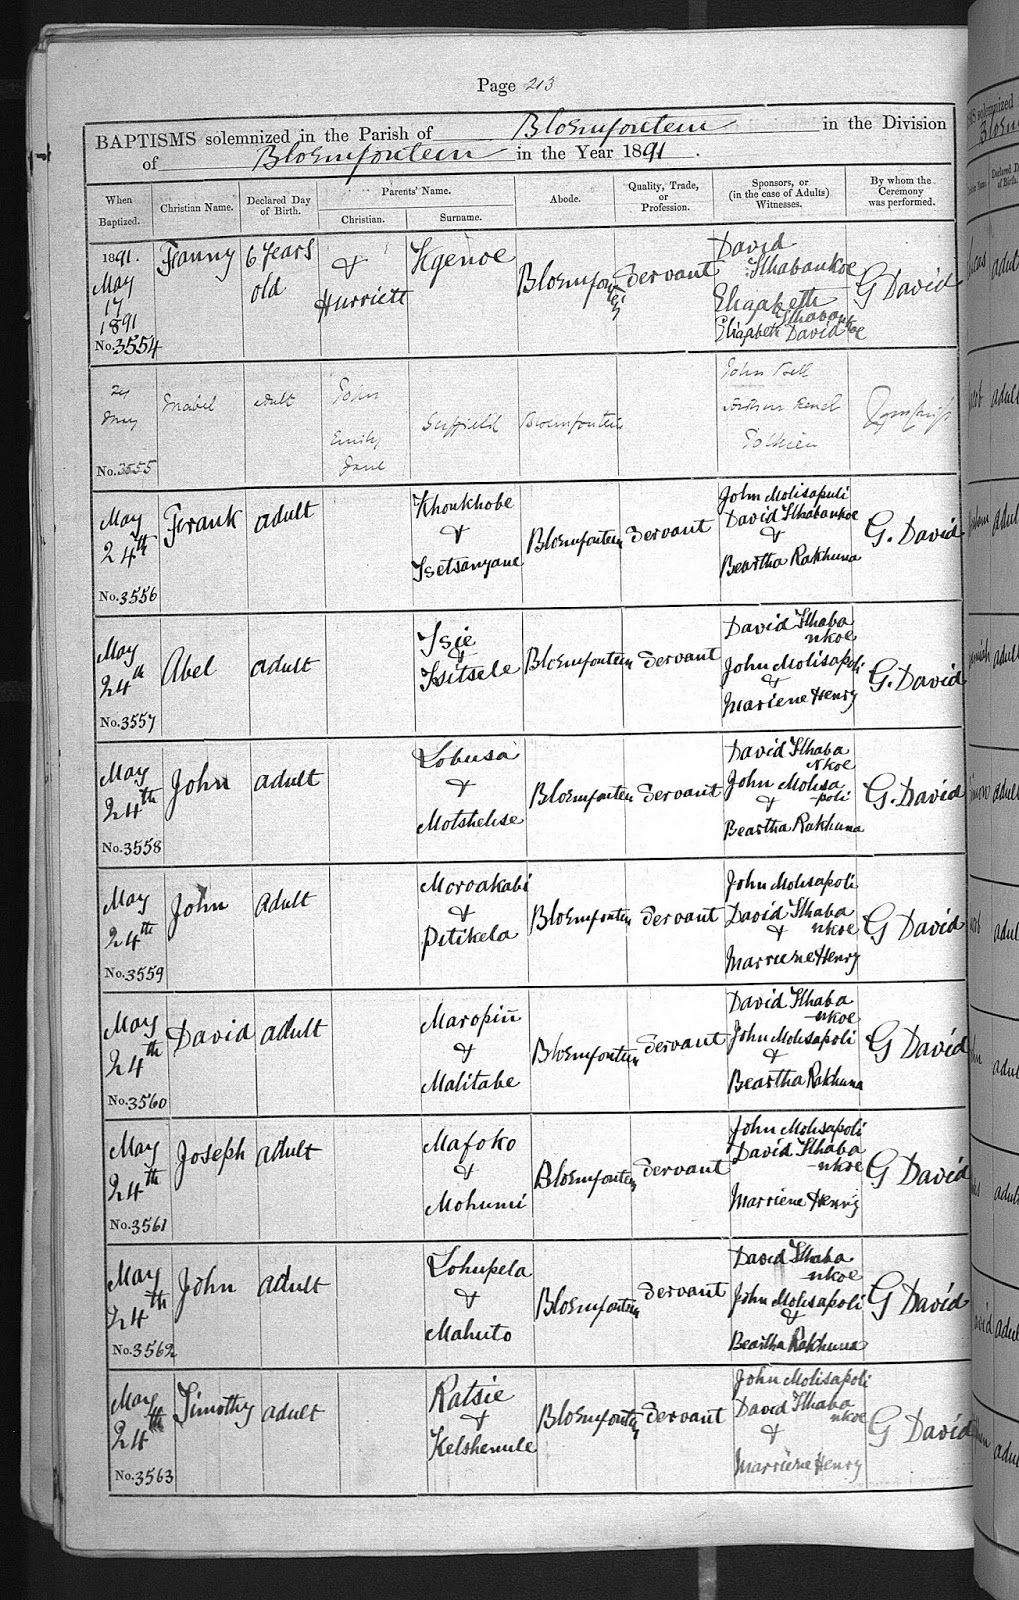 Page 213
BAPTISMS solemnized in the Parish of Bloemfontein in the Division
of Bloemfontein in the Year 1891.
When Baptized.
Christian Name.
Declared Day of Birth.
Parents' Name.
Christian.
Surname.
Abode.
Quality, Trade, or Profession.
Sponsors, or (in the case of Adults) Witnesses.
By whom the Ceremony was performed.
1891. May 17 1891 No. 3554
Fanny
6 years old
& Hurriett
Kgenoe
Bloemfontein
Servant
David Tlhabankoe
Elizabeth Tlhabankoe
Elizabeth David
G David
May No. 3555
Mabel
adult
John
Emily Jane
Suffield
Bloemfontein
John Bell
Arthur Reuel
Tolkien
May 24th No. 3556
Frank
adult
Khoukhobe & Tsetsanyane
Bloemfontein
Servant
John Molisapoli
David Tlhabankoe
&
Beartha Rakhuna
G. David
May 24th No. 3557
Abel
adult
Tsie & Tsitsele
Bloemfontein
Servant
David Tlhabankoe
John Molisapoli
&
Mariene Henry
G. David
May 24th No. 3558
John
adult
Lobusa & Motshelise
Bloemfontein
Servant
David Tlhabankoe
John Molisapoli
&
Beartha Rakhuna
G. David
May 24th No. 3559
John
adult
Moroakabi & Pitikela
Bloemfontein
Servant
John Molisapoli
David Tlhabankoe
&
Marriene Henry
G David
May 24th No. 3560
David
adult
Maropiñ & Malitabe
Bloemfontein
Servant
David Tlhabankoe
John Molisapoli
&
Beartha Rakhuna
G David
May 24th No. 3561
Joseph
adult
Mafoko & Mohumi
Bloemfontein
Servant
John Molisapoli
David Tlhabankoe
Marriene Henry
G David
May 24th No. 3562
John
adult
Lohupela & Mahuto
Bloemfontein
Servant
David Tlhabankoe
John Molisapoli
&
Beartha Rakhuna
G David
May 24th No. 3563
Timothy
adult
Ratsie & Kelshemile
Bloemfontein
Servant
John Molisapoli
David Tlhabankoe
&
Marriene Henry
G David